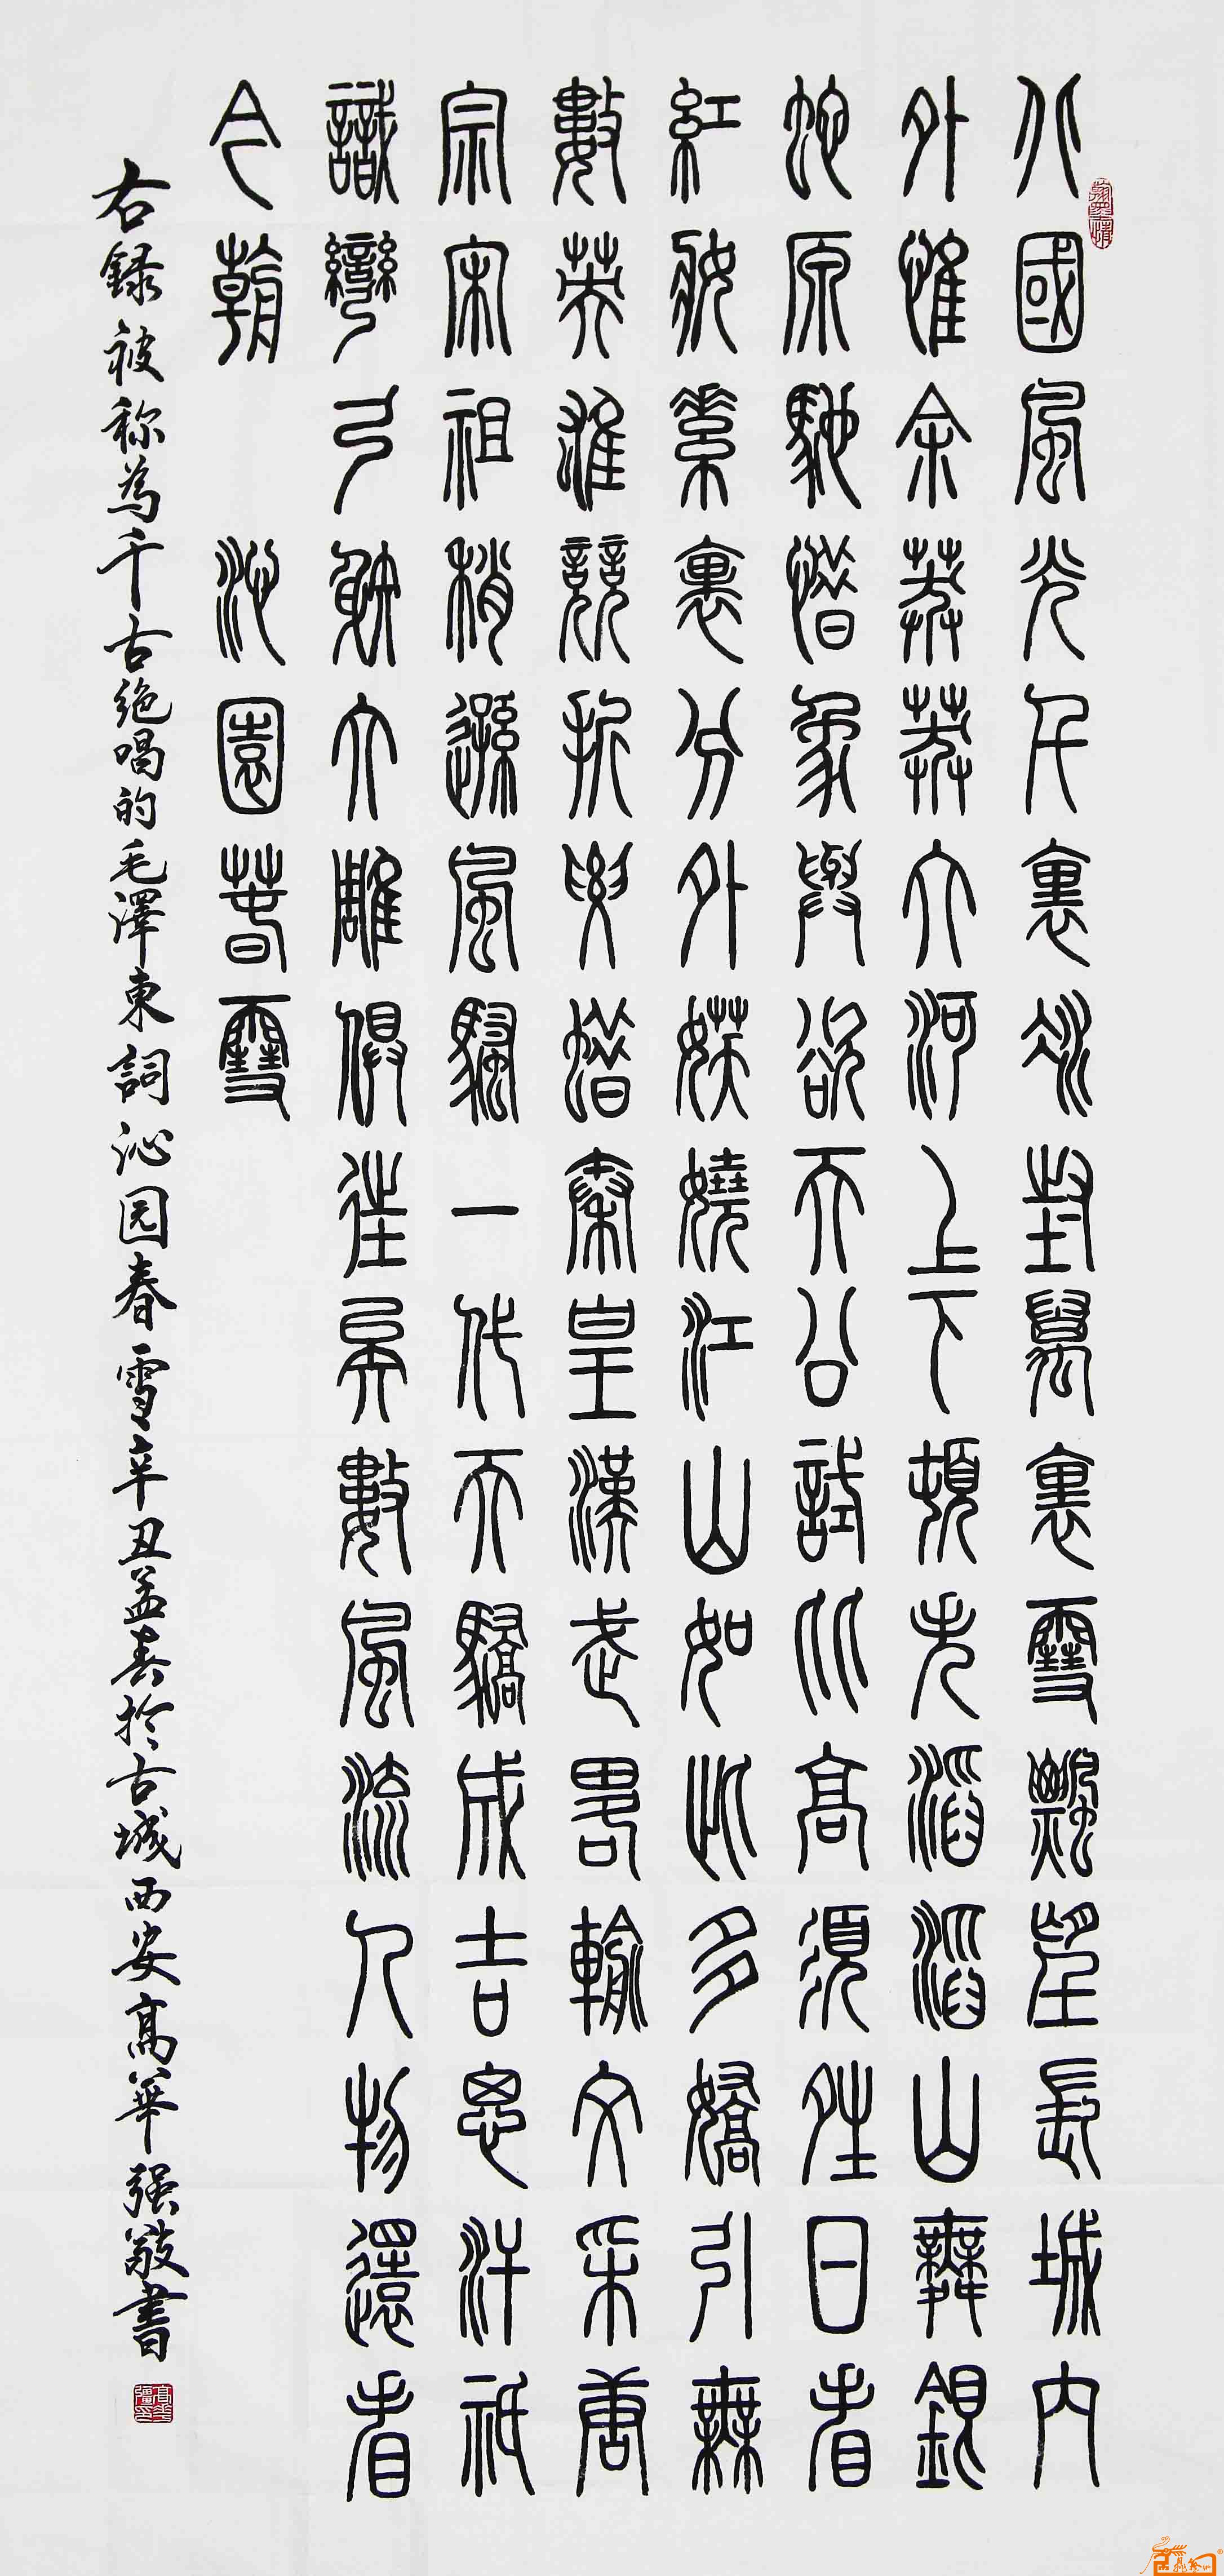 北國風光千裏冰封萬裏雪飄望長城內
外惟余莽莽大河上下頓失滔滔山舞銀
蛇原馳惜象與欲天公試比高須晴日看
紅妝素裏分外妖嬈江山如此多嬌引無
數英雄競折腰蜡秦皇漢武略輸文采唐
宗宋祖稍遜風騷一代天驕成吉思汗祇
識彎弓射大雕俱往矣數風流人物還看
今朝 沁園春雪
右録被称為千古絶唱的毛澤東詞沁园春雪辛丑孟春於古城西安高華强敬書